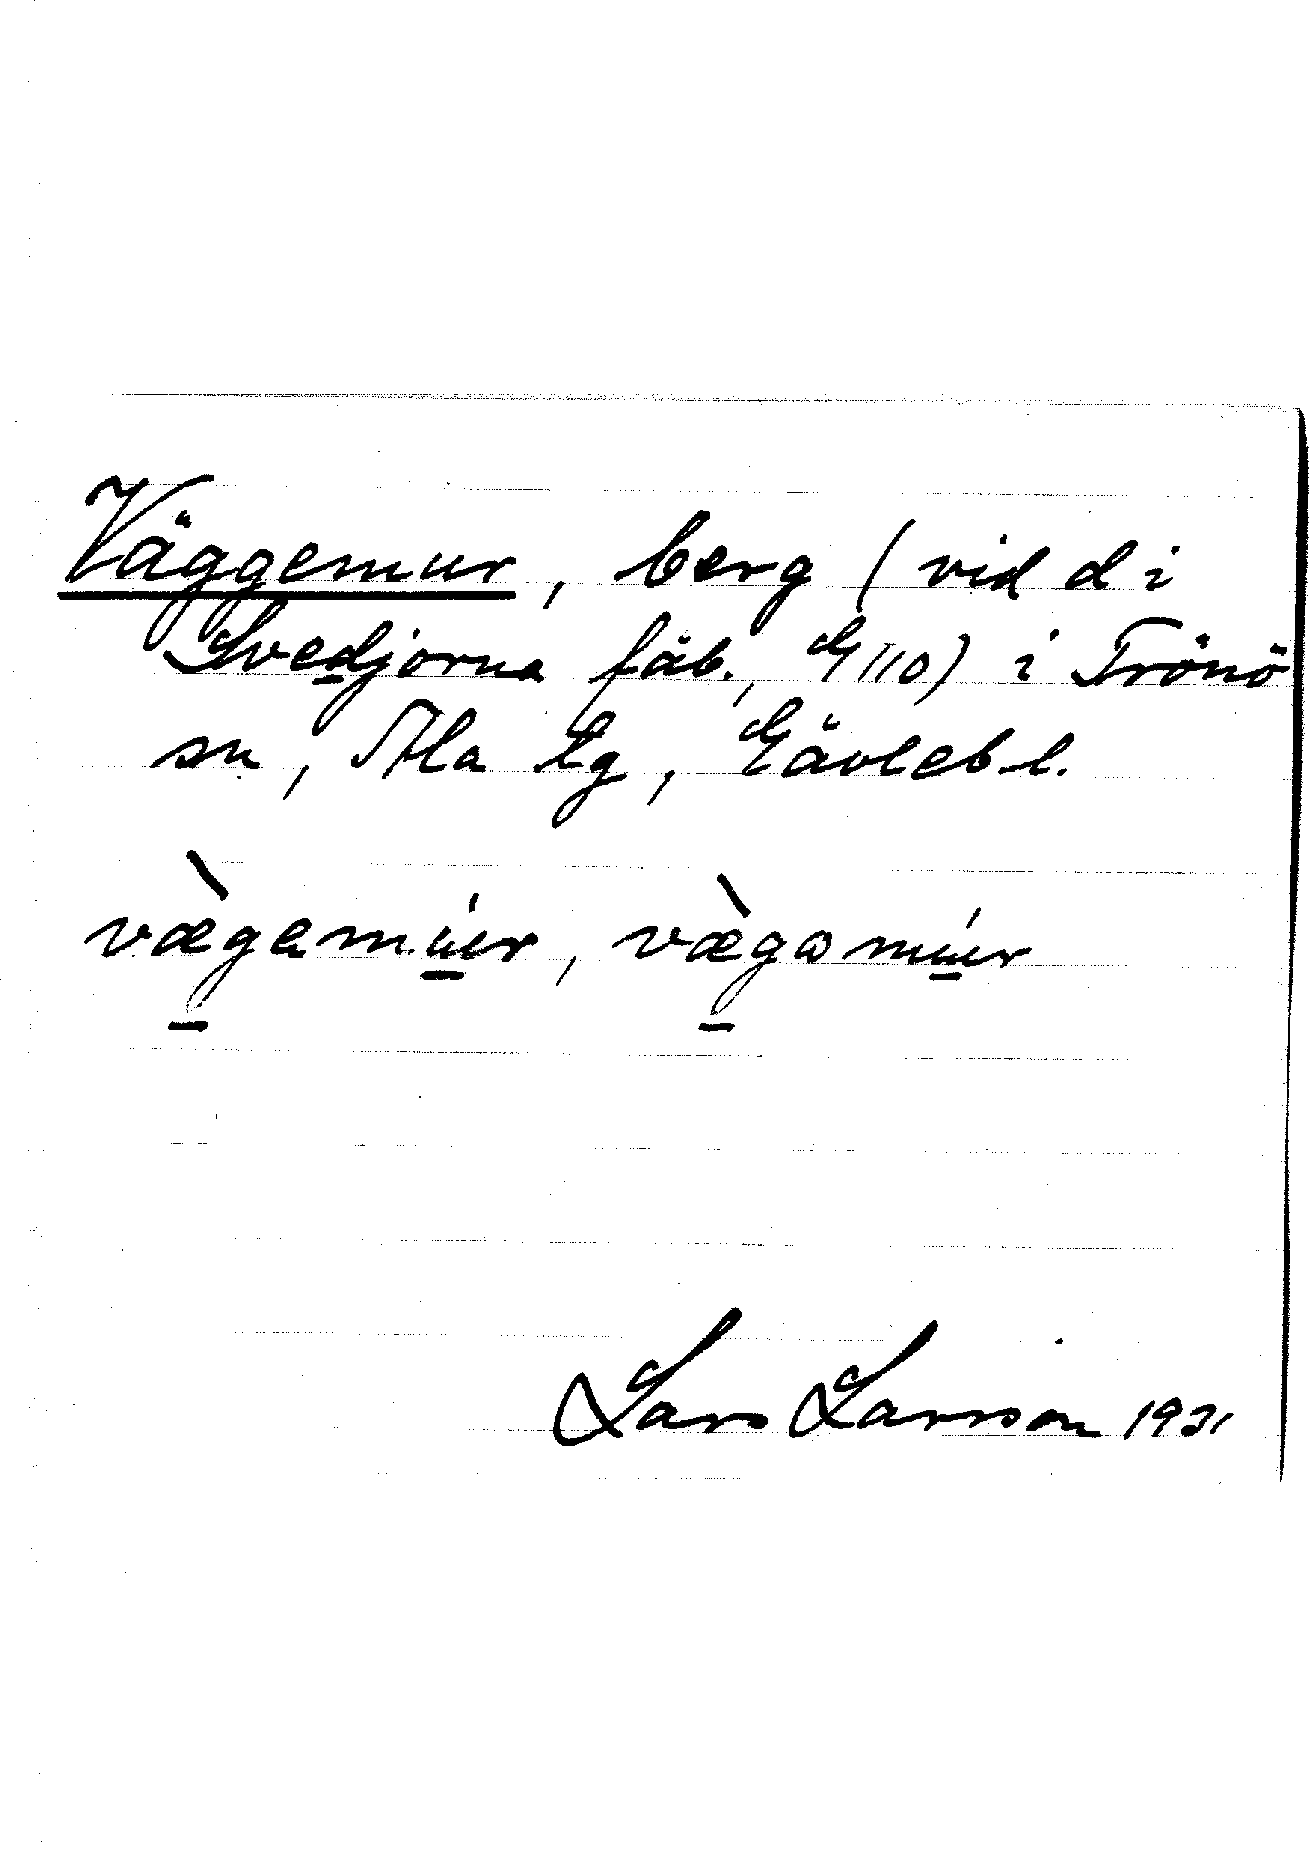 Väggemur, berg (vid d i
Svedjorna fäb., G 110) i Trönö
sn, Ala tg, Gävlebl.
vægemúr, vægəmúr
Lars Larsson 1931